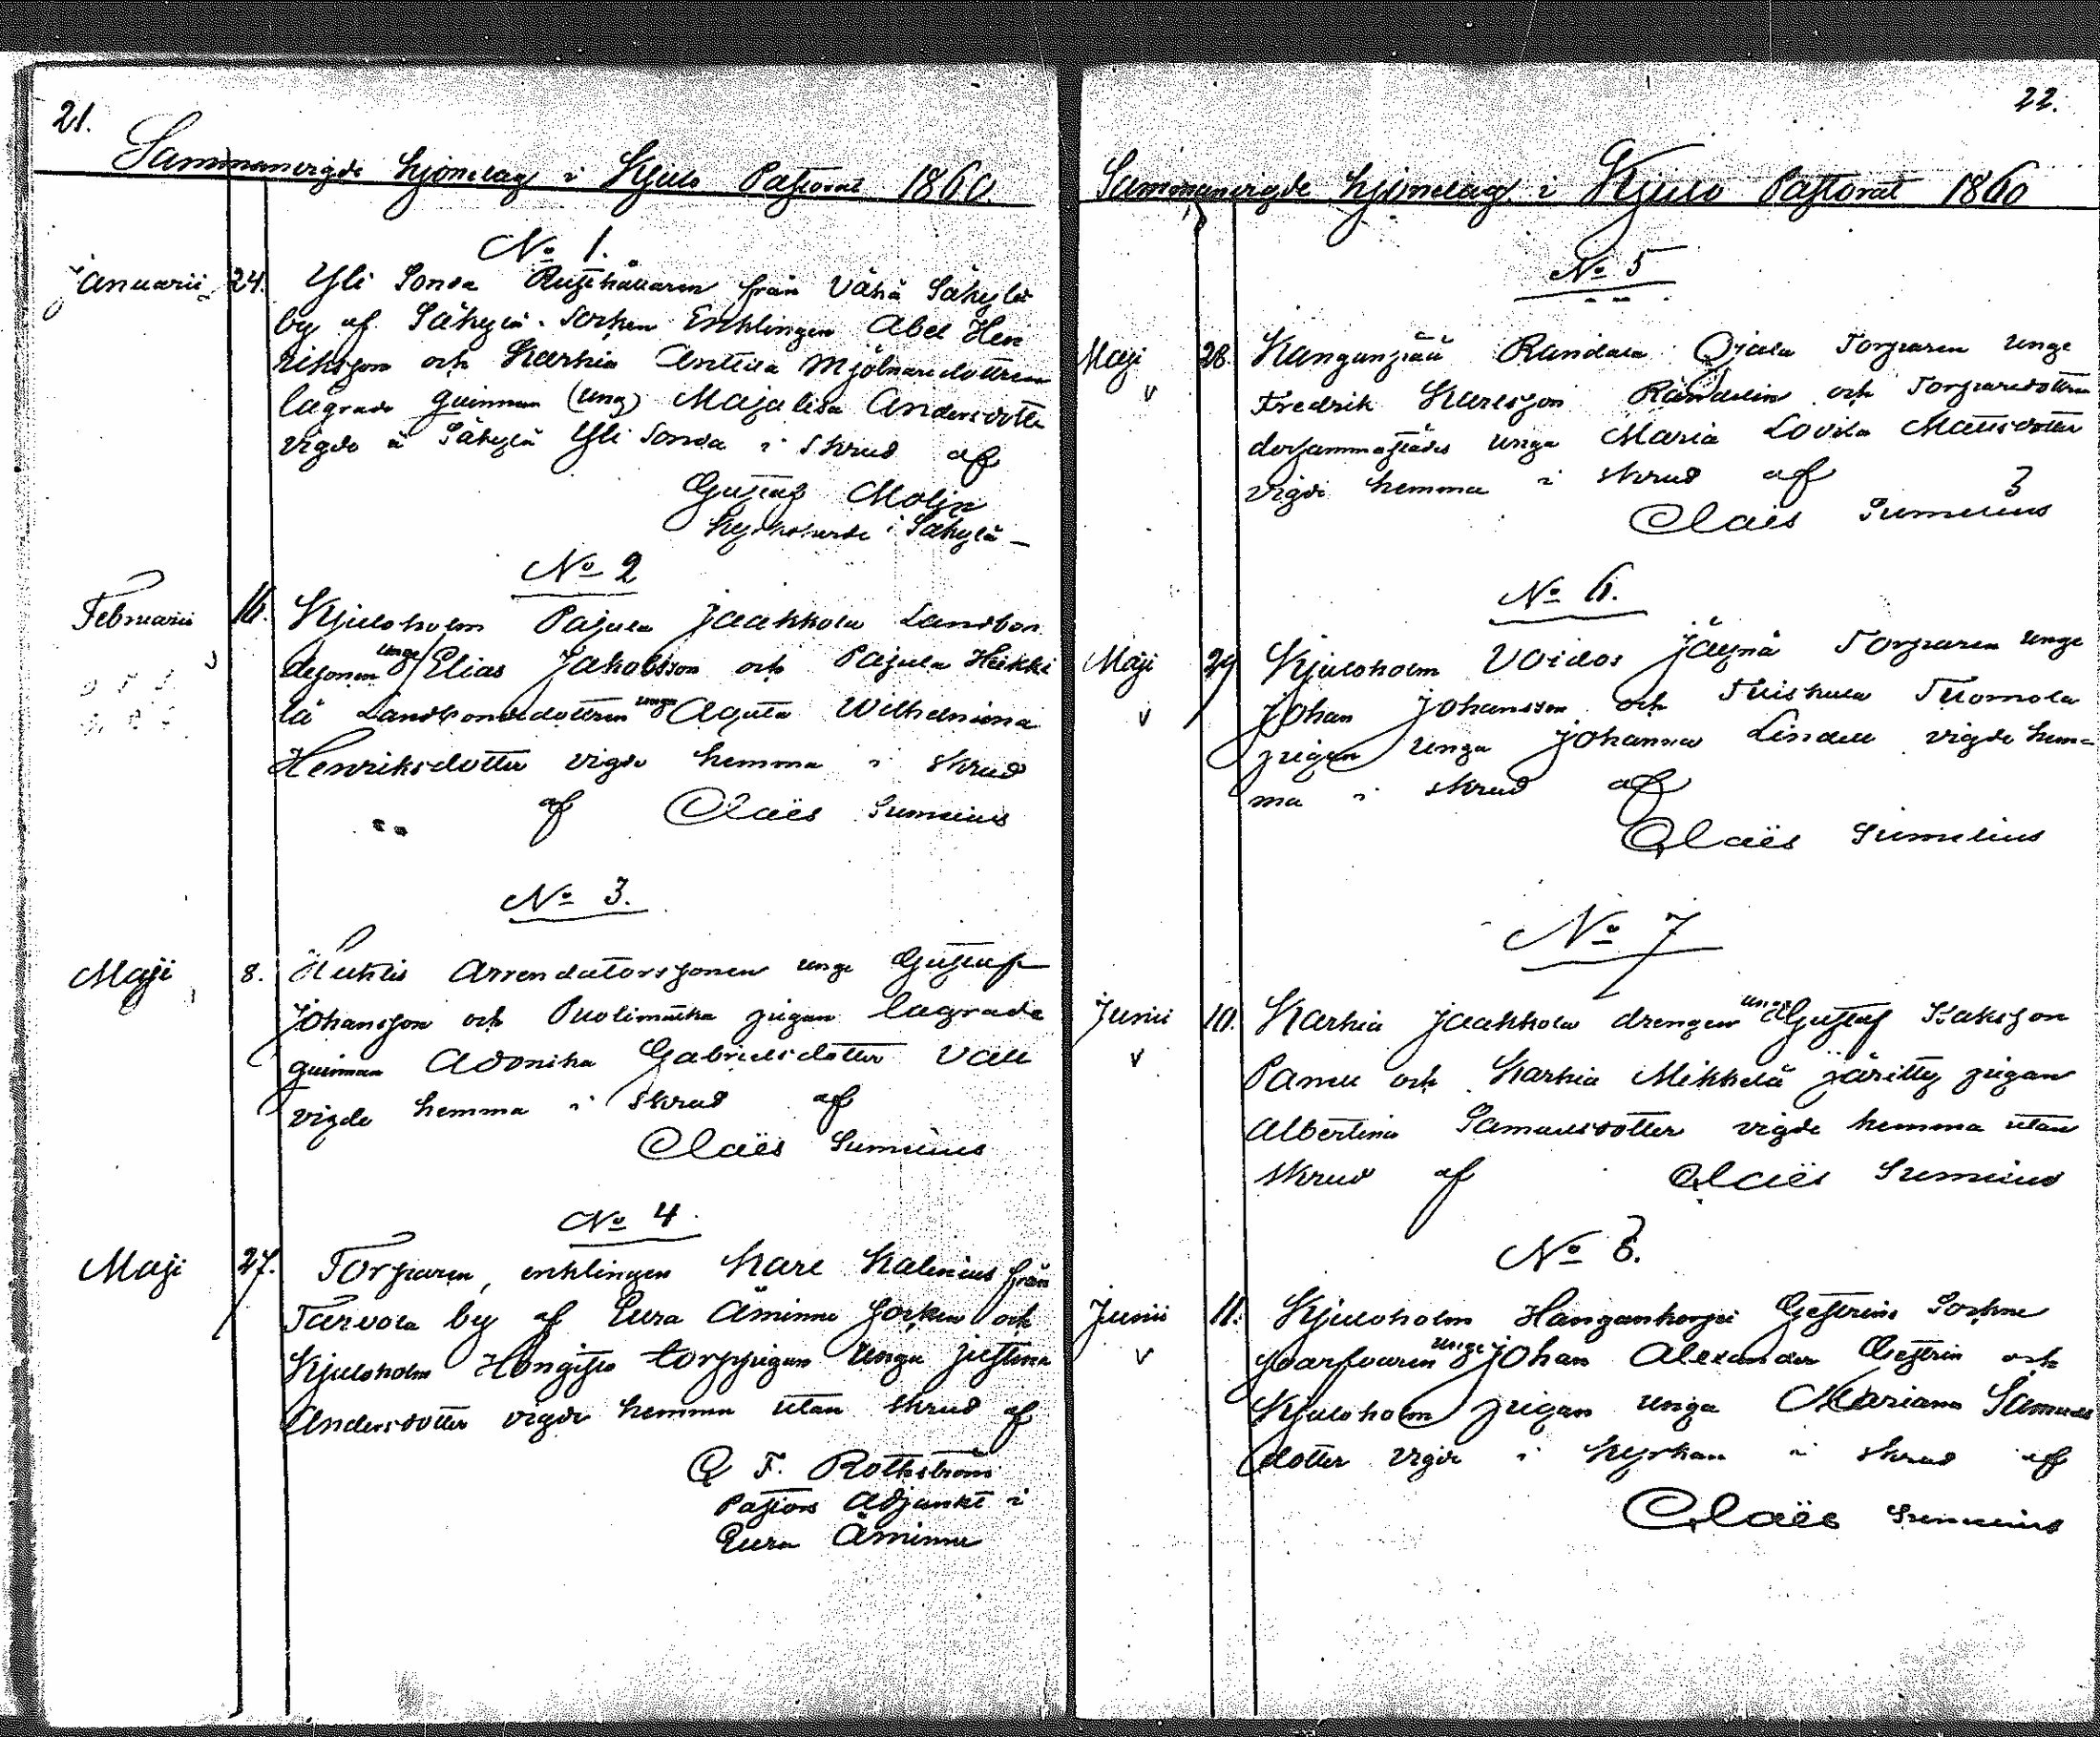 21.
Sammanvigde hjonelag i Kjulo Pastorat 1860.
No 1.
Januarii 24. Yli Sonda Rusthållaren från Vähä Säkylä
by af Säkylä Socken Enklingen Abel Hen
riksson och Karhia Anttila Mjölnaredottren
lagrade quinnan (ung) Majalisa Andersdotter
vigde å Säkylä Yli Sonda i skrud af
Gustaf Molin
Kyrkoherde i Säkylä
No 2
Februarii 16. Kjuloholm Pajula Jaakkola Landbon
desonen unge Elias Jakobsson och Pajula Heikki
lä Landbondedottren unga Agata Wilhelmina
Henriksdotter vigde hemma i skrud
af Claës Sumelius
No 3.
Maji 8. Arrendatorssonen unge Gustaf
Johansson och Puolimatka pigan lagrade
quinnan Adonika Gabrielsdotter Vall
vigde hemma i skrud af
Claës Sumelius
No 4.
Maji 27. Torparen, enklingen Karl Kalenius från
by af Eura Åminne Socken och
Kjuloholm Hongisto torppigan unga Justina
Andersdotter vigde hemma utan skrud af
F. Rothström
Pastors Adjunkt i
Eura Åminne
22.
Sammanvigde hjonelag i Kjulo Pastorat 1860
No 5
Maji 28. Kanganpää Randala Ojala Torparen unge
Fredrik Karlsson Randelin och Torparedottren
dersammastädes unga Maria Lovisa Mattsdotter
vigde hemma i skrud af
Claës Sumelius
No 6.
Maji 29 Kjuloholm Voidos Torparen unge
Johan Johansson och Tuiskula Tuomola
pigan unga Johanna Lindell vigde hem=
ma i skrud af
Claës Sumelius
No 7
Junii 10. Karhia Jaakkola drengen unge Gustaf Isaksson
Paneli och Karhia Mikkelä pigan
Albertina Samuelsdotter vigde hemma utan
skrud af Claës Sumelius
No 8.
Junii 11. Kjuloholm Hangankorpi Gestrins Sockne
unge Johan Alexander Gestrin och
Kjuloholm pigan unga Mariana Samuels
dotter vigde i kyrkan i skrud af
Claës Sumelius